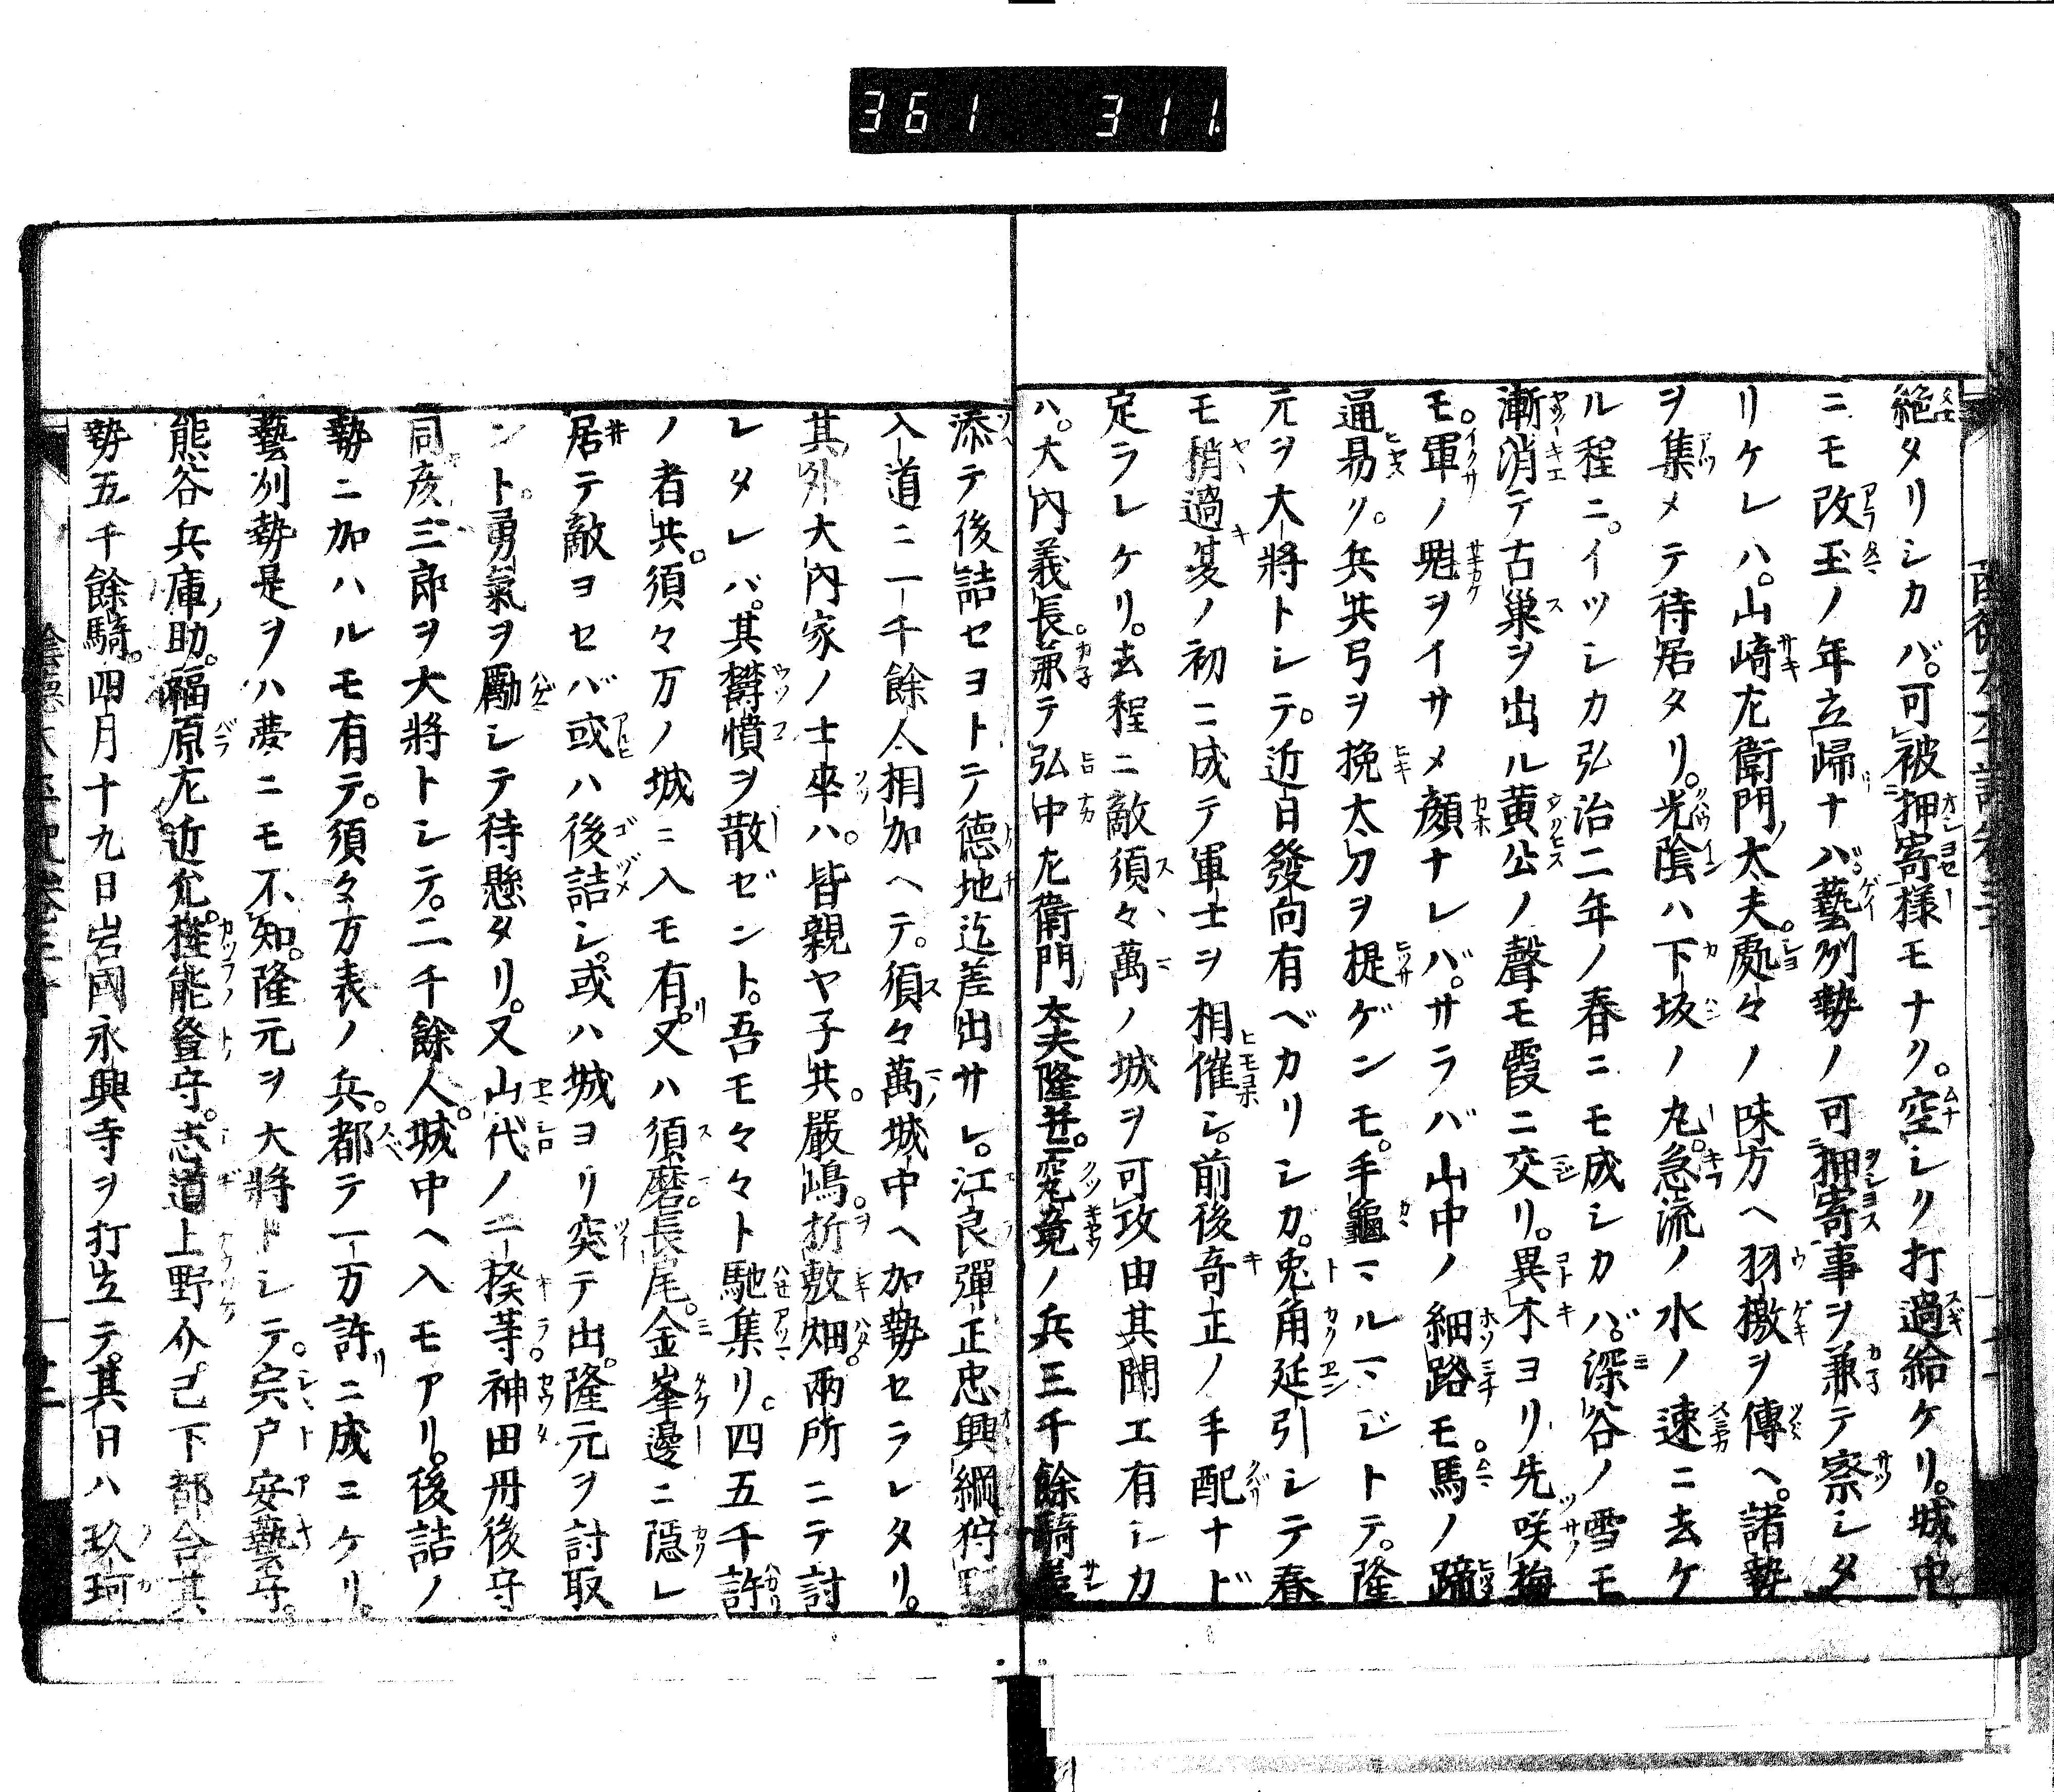 361 311
絶タリシカバ。可被押寄様モナク。空シク打過給ケリ。城中
ニモ改玉ノ年立帰ナハ藝州勢ノ可押寄事ヲ兼テ察シタ
リケレハ。山崎左衛門太夫。處々ノ味方ヘ羽檄ヲ傳ヘ。諸勢
ヲ集メテ待居タリ。光陰ハ下坂ノ丸。急流ノ水ノ速ニ去ケ
ル程ニ。イツシカ弘治二年ノ春ニモ成シカバ。深谷ノ雪モ
漸消テ古巣ヲ出ル黄公ノ聲モ霞ニ交リ。異木ヨリ先咲梅
モ。軍ノ魁ヲイサメ顔ナレバ。サラバ山中ノ細路モ馬ノ蹄
通易ク。兵共弓ヲ挽太刀ヲ提ゲンモ。手龜マルマジトテ。隆
元ヲ大將トシテ。近日發向有ベカリシカ。兎角延引シテ春
モ稍過夏ノ初ニ成テ軍士ヲ相催シ。前後奇正ノ手配ナド
定ラレケリ。去程ニ敵須々萬ノ城ヲ可攻由其聞エ有シカ
ハ。大内義長。兼テ弘中左衛門大夫隆并。究竟ノ兵三千餘騎差
添テ後詰セヨトテ德地迄差出サレ。江良彈正忠興綱狩
入道ニ一千餘人相加ヘテ。須々萬城中ヘ加勢セラレタリ。
其外大内家ノ士卒ハ。皆親ヤ子共。嚴嶋。折敷畑。兩所ニテ討
レタレバ。其欝憤ヲ散ゼント。吾モ々々ト馳集リ。四五千許
ノ者共。須々万ノ城ニ入モ有。又ハ須磨。長尾。金峯邊ニ隠レ
居テ敵ヨセバ或ハ後詰シ。或ハ城ヨリ突テ出。隆元ヲ討取
ント。勇氣ヲ勵シテ待懸タリ。又山代ノ一揆等。神田丹後守
同彦三郎ヲ大將トシテ。二千餘人。城中ヘ入モアリ。後詰ノ
勢ニ加ハルモ有テ。須々方表ノ兵。都テ一万許ニ成ニケリ。
藝州勢是ヲハ夢ニモ不知。隆元ヲ大將トシテ。宍戸安藝守。
熊谷兵庫助。福原左近允。桂能登守。志道上野介。已下都合其
勢五千餘騎。四月十九日岩國永興寺ヲ打立テ。其日ハ玖珂